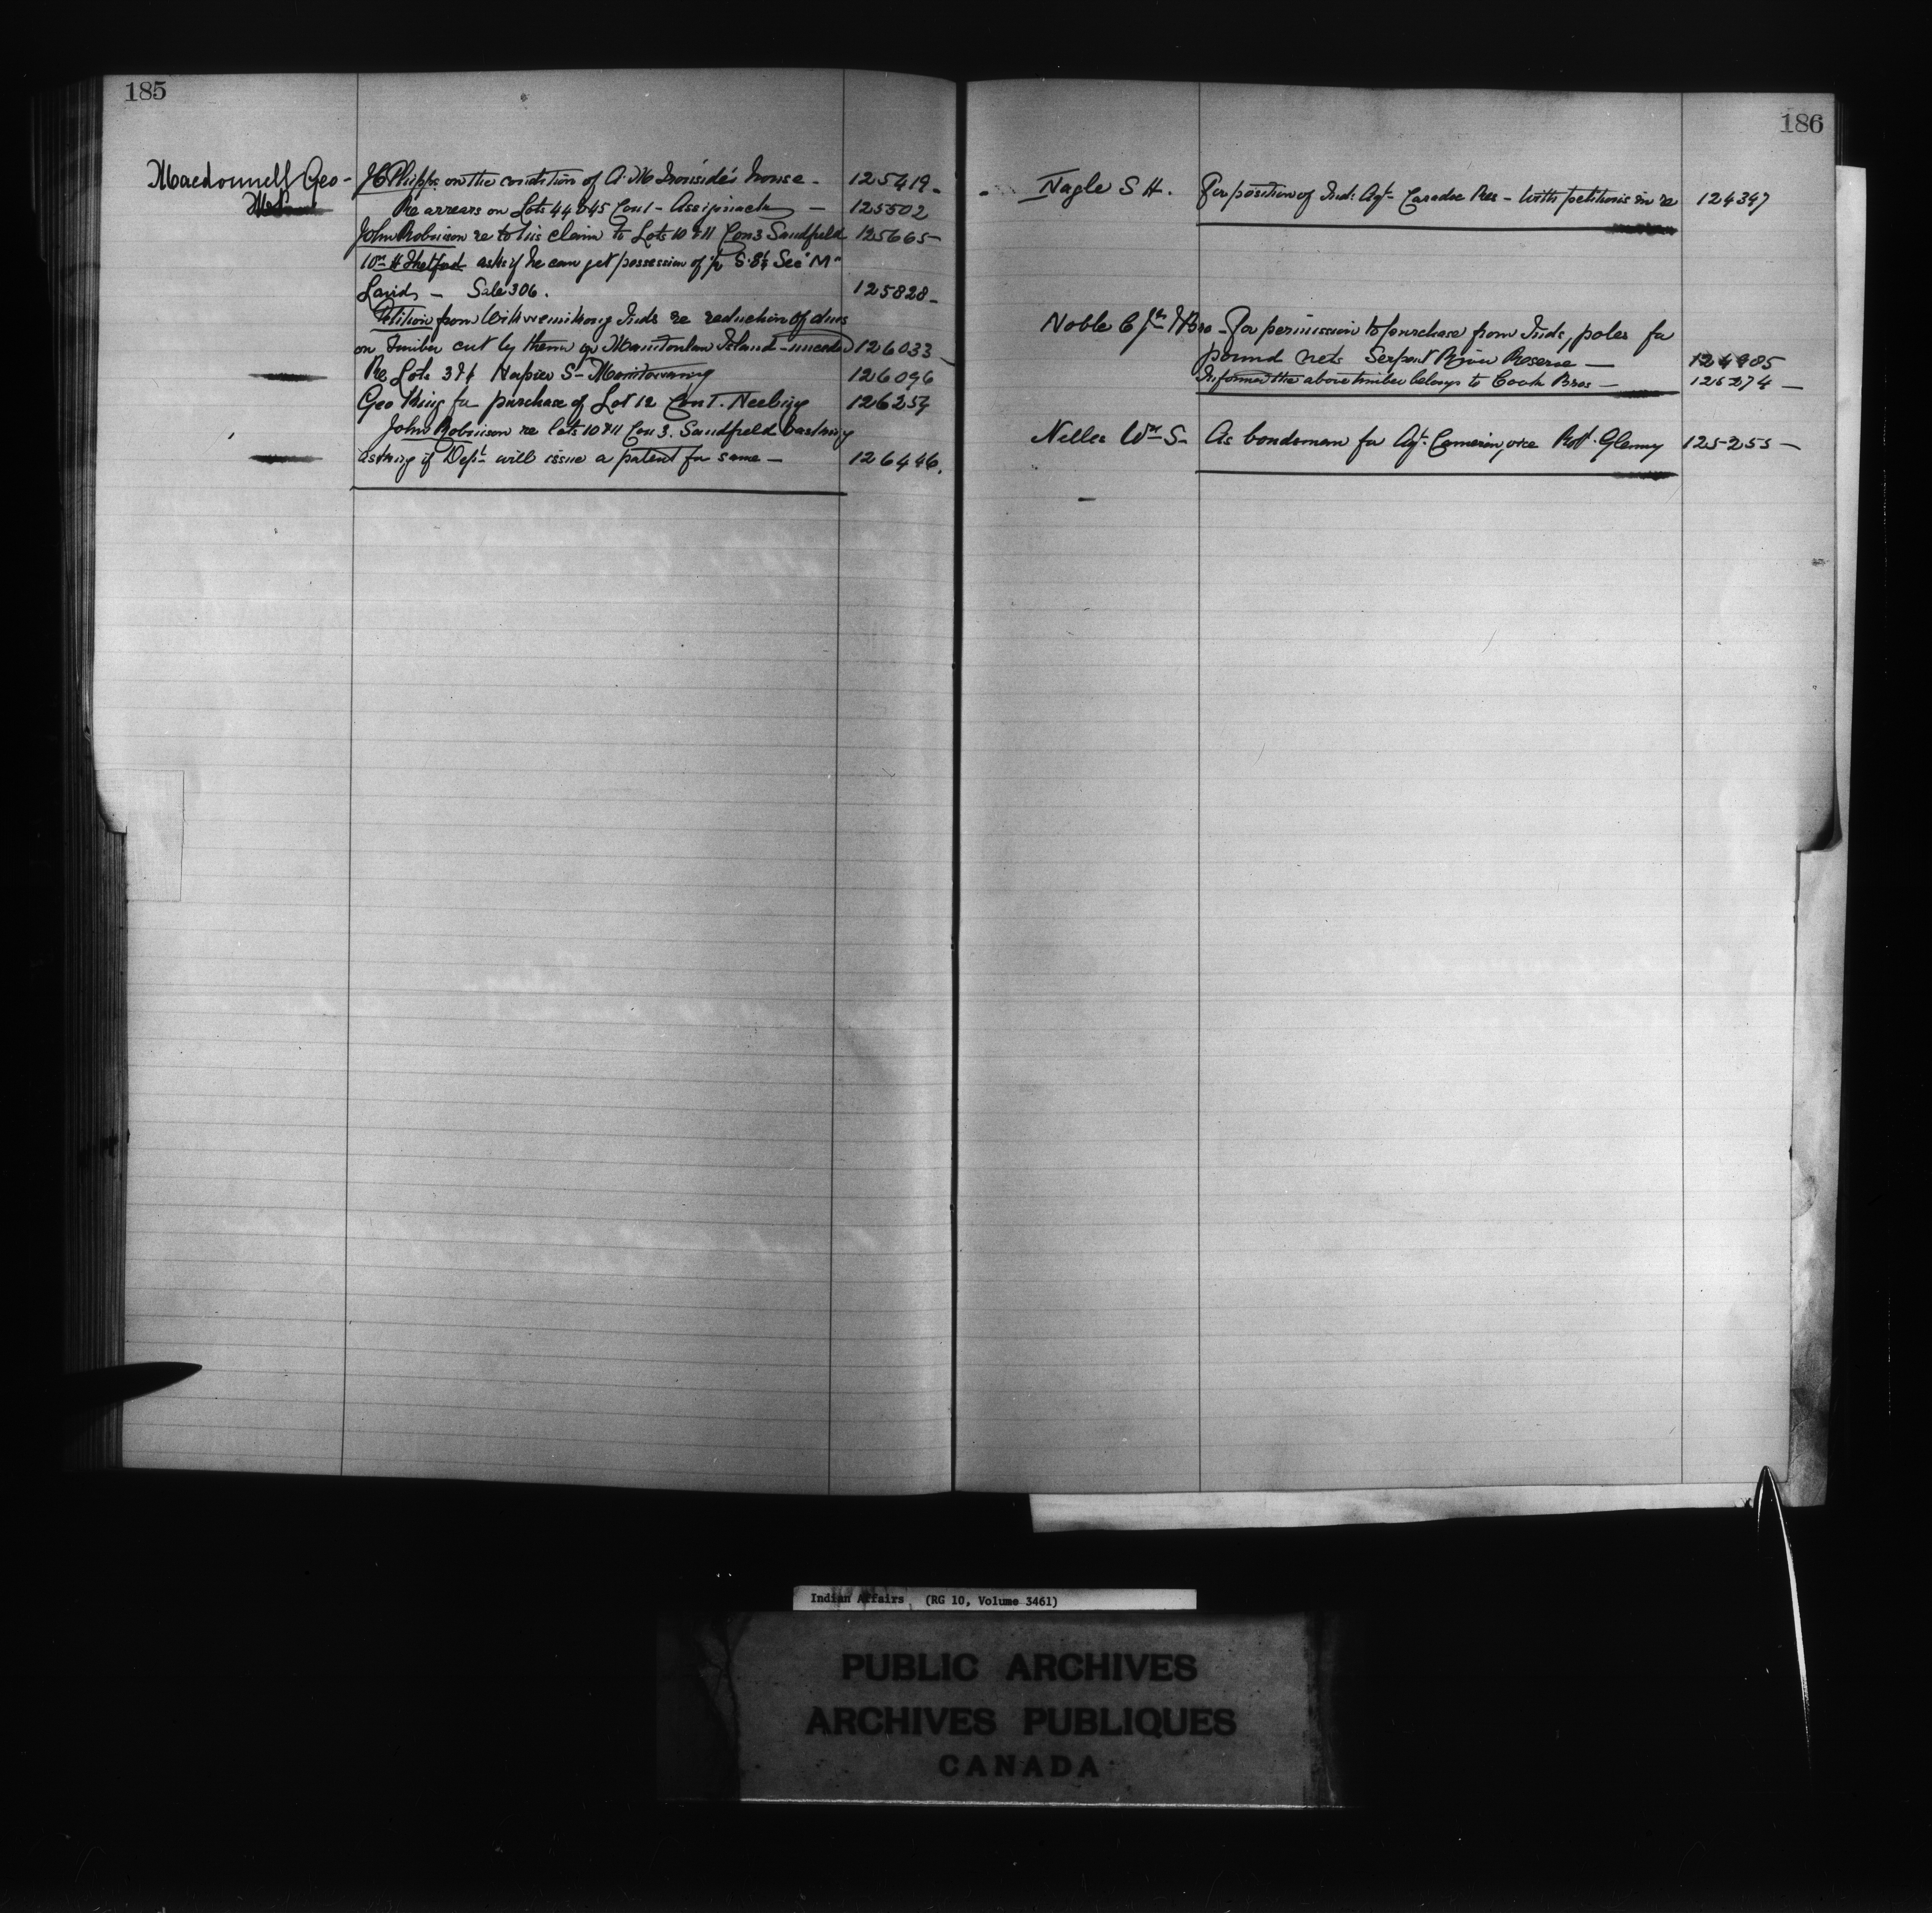 185
Macdonnell Geo -
J C Phipps on the condition of A. M Ironside's house - 125419 -
Re arrears on Lots 44 & 45 Con 1 - Assiginack - 125502
John Robinson re to his claim to Lots 10 & 11 Con 3 Sandfield 125665 -
Wm H Thetford asks if he can get possession of S. Sec "M"
Lairds - Sale 306. 125828 -
Petition from Wikwemikong Inds re reduction of dues
on timber cut by them on Manitoulin Island - unceded 126033 -
Re Lots 3 & 4 Napier S - Manitowaning 126096
Geo King for purchase of Lot 12 Con 1. Neebing 126254
John Robinson re lots 10 & 11 Con 3. Sandfield & asking
asking if Dept will issue a patent for same - 126446.
186
Nagle S H. For position of Ind: Agt - Caradoc Res - with petitions in re 124347
Noble C & Bro - For permission to purchase from Inds, poles for
pound nets Serpent River Reserve - 124905
Informed the above timber belongs to Cook Bros - 125274 -
Nelles Wm S - As bondsman for Agt. Cameron, vice Robt. Glenny 125255 -
Indian Affairs (RG 10, Volume 3461)
PUBLIC ARCHIVES
ARCHIVES PUBLIQUES
CANADA